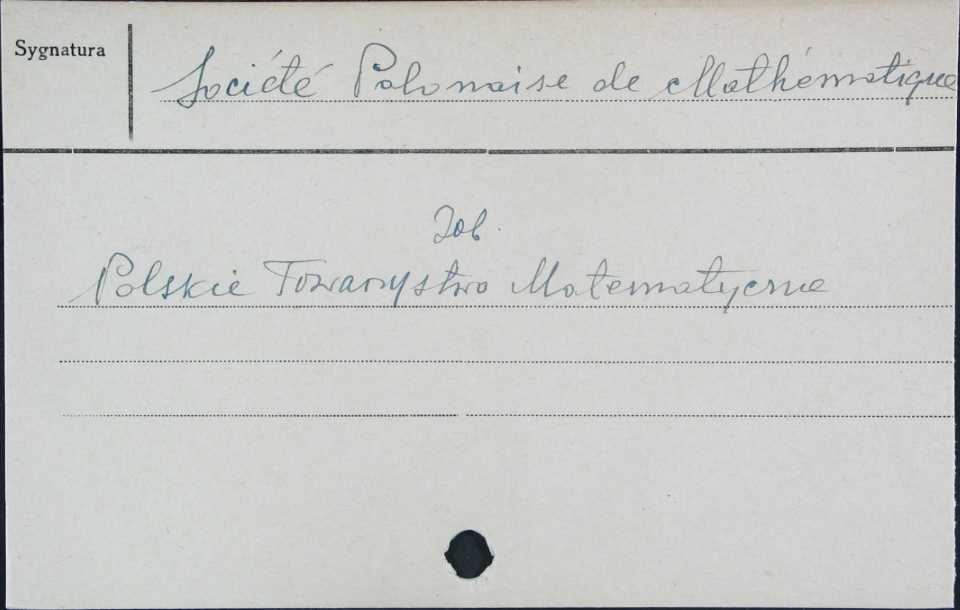 Sygnatura
Société Polonaise de Mathématique
Zob.
Polskie Towarzystwo Matematyczne